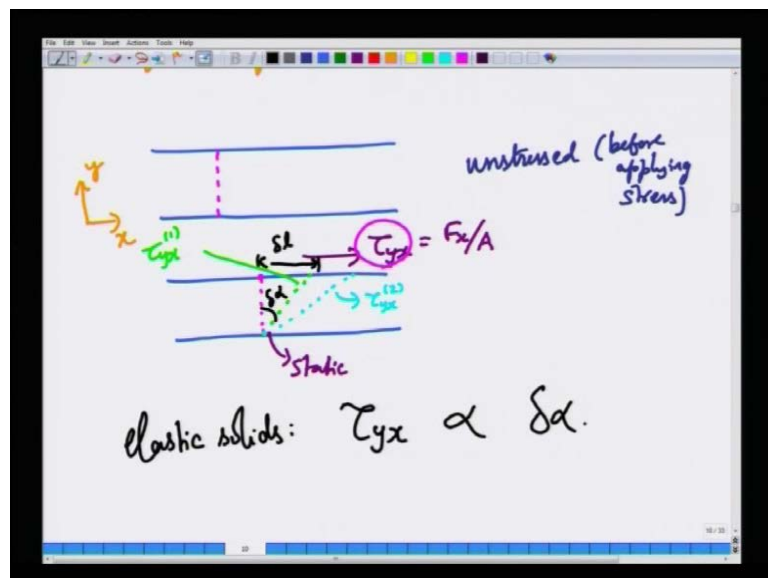 File Edit View Insert Actions Tools Help
unstressed (before applying stress)
y
x
τyx(1)
δl
τyx = Fx/A
δα
τyx(2)
Static
elastic solids: τyx ∝ δα.
10